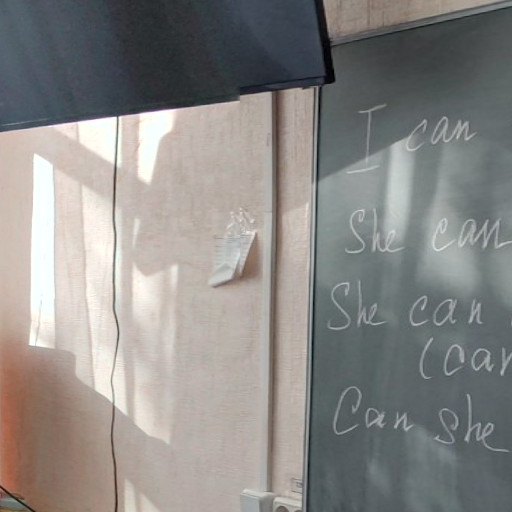 I can
She can
She can
Can she